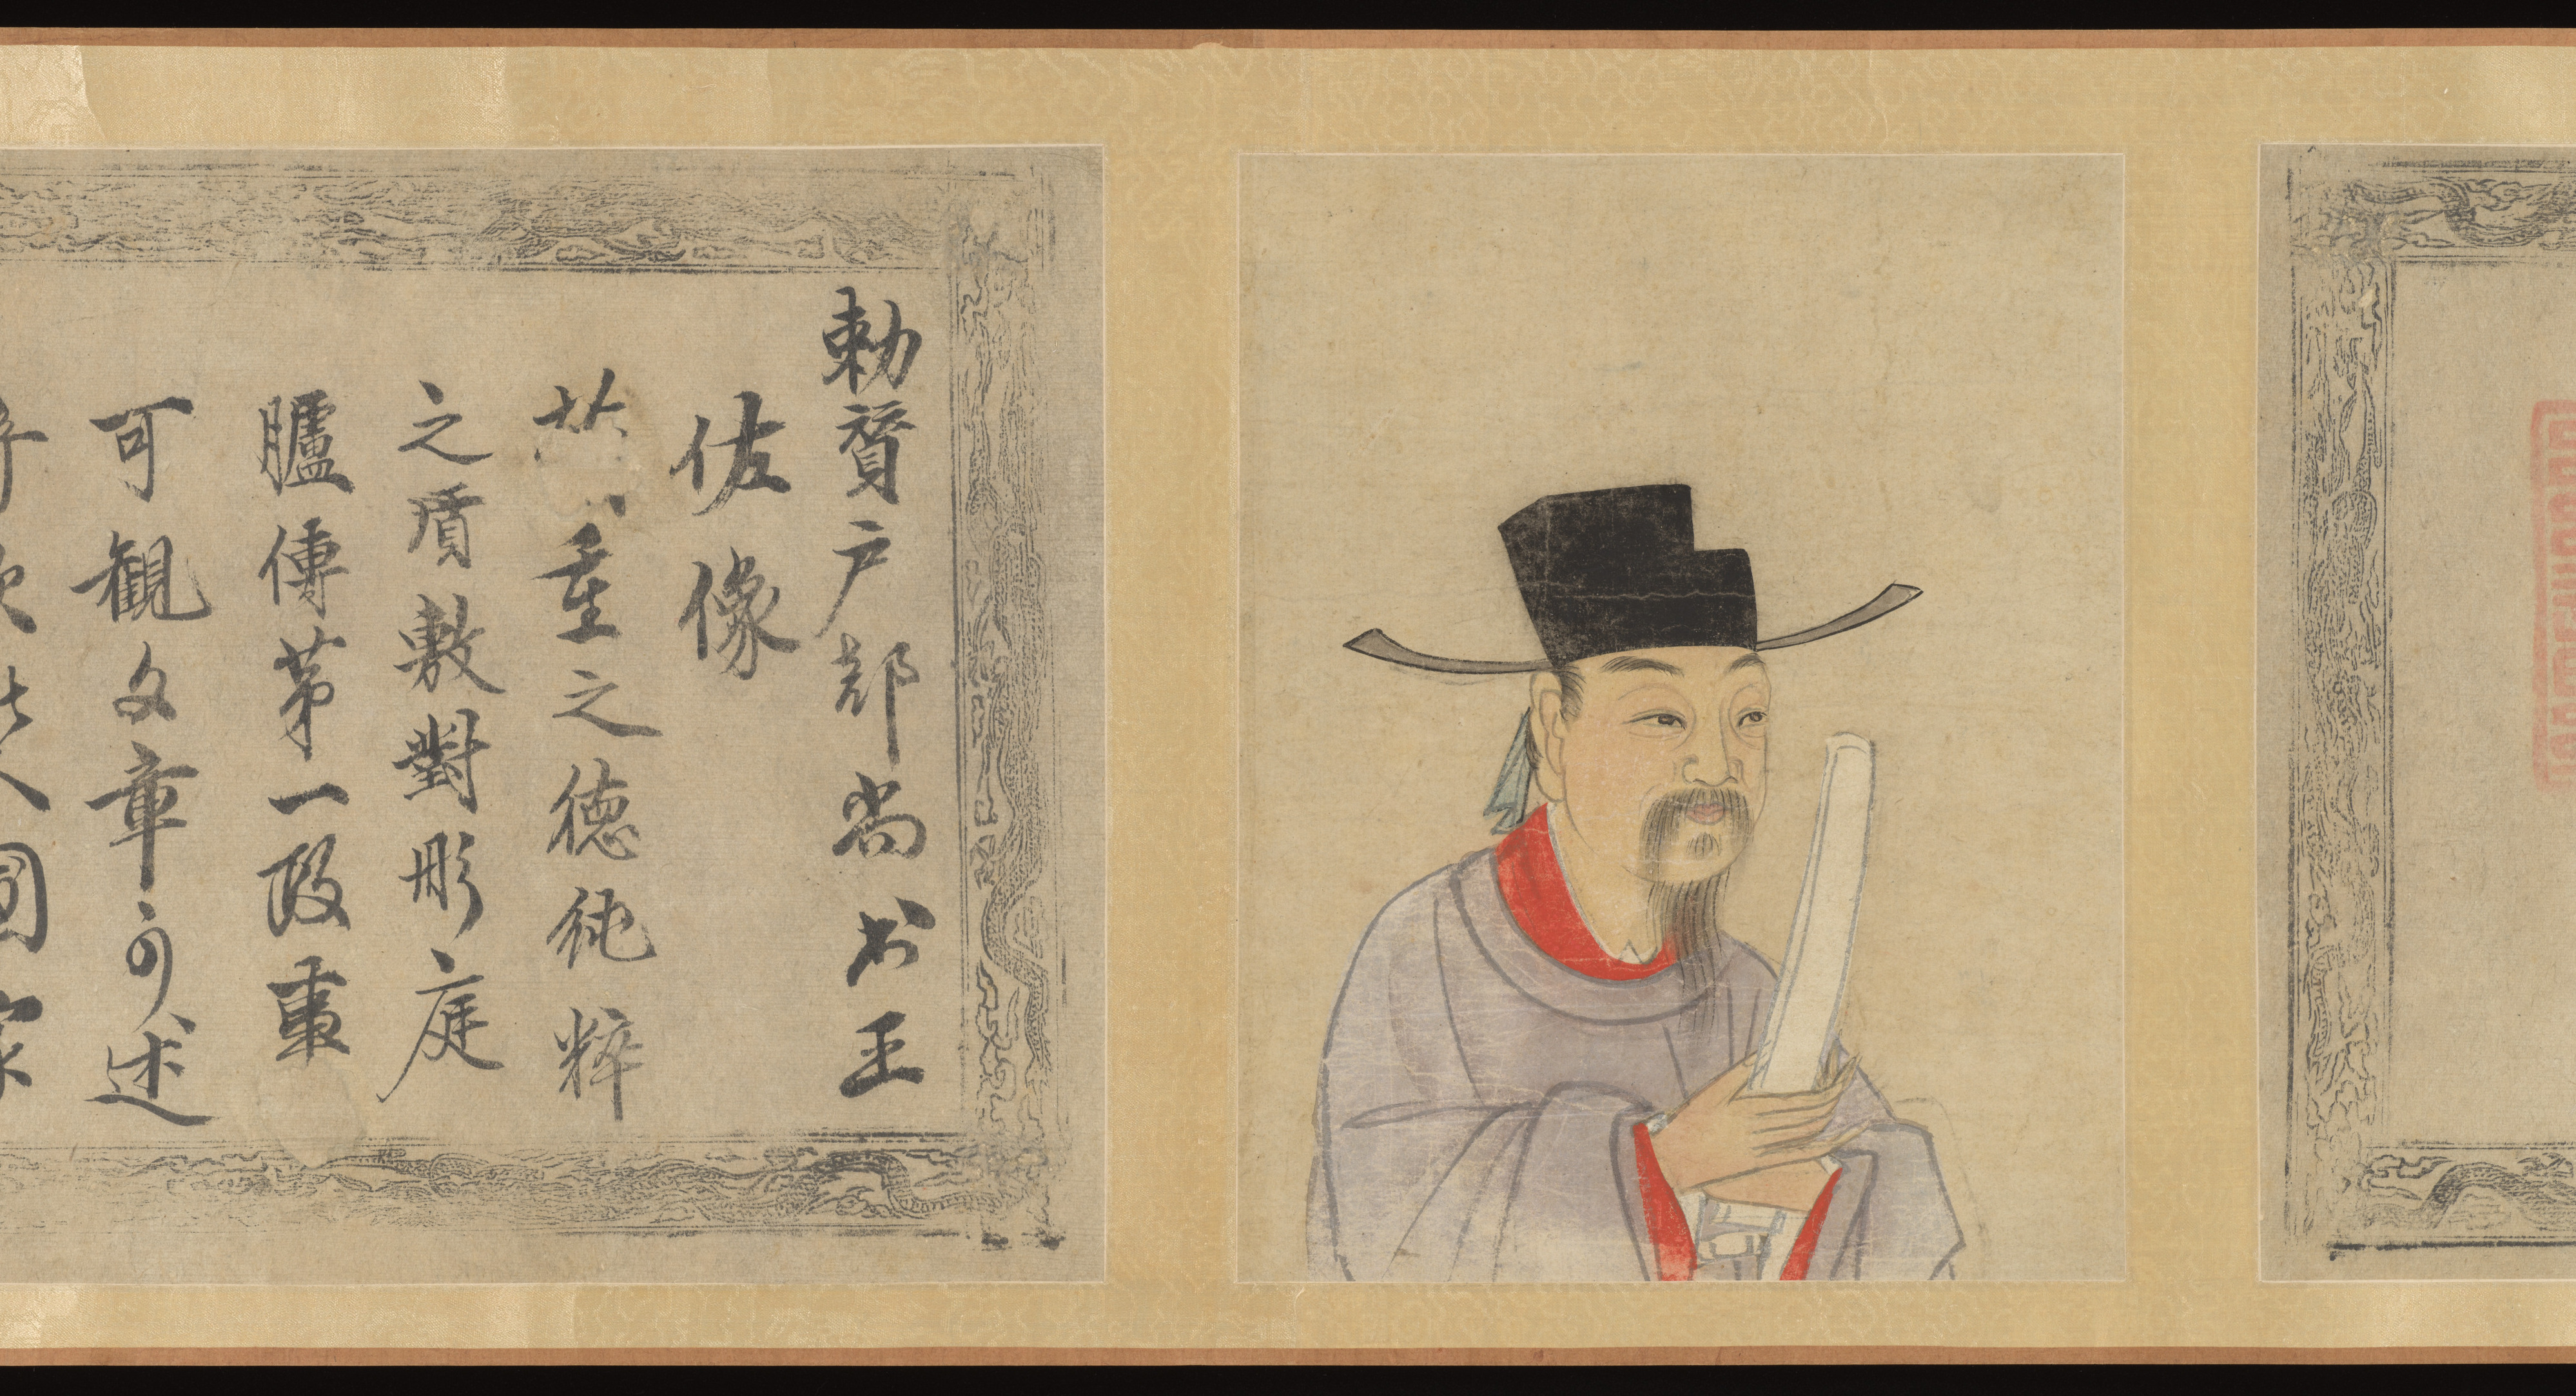 勅贊户部尚书王
佐像
於重之德純粹
之質敷對彤庭
臚傳第一政事
可觀文章可述